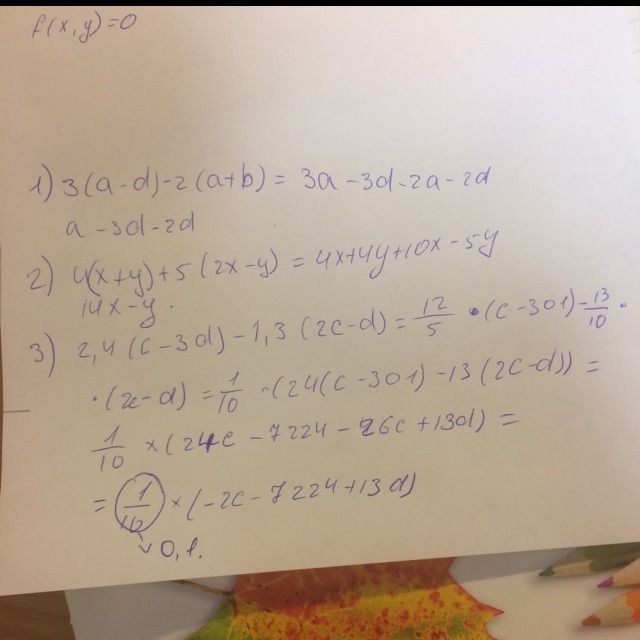 f(x,y)=0
1) 3(a-d)-2(a+b)= 3a-3d-2a-2d
a-3d-2d
2) 4(x+y)+5(2x-y)=4x+4y+10x-5y
14x-y.
3) 2,4(c-3d)-1,3(2c-d)=12/5 ·(c-301)-13/10 ·
·(2c-d)=1/10 ·(24(c-301)-13(2c-d))=
1/10 ×(24c-7224-26c+13d)=
=1/10 ×(-2c-7224+13d)
0,1.